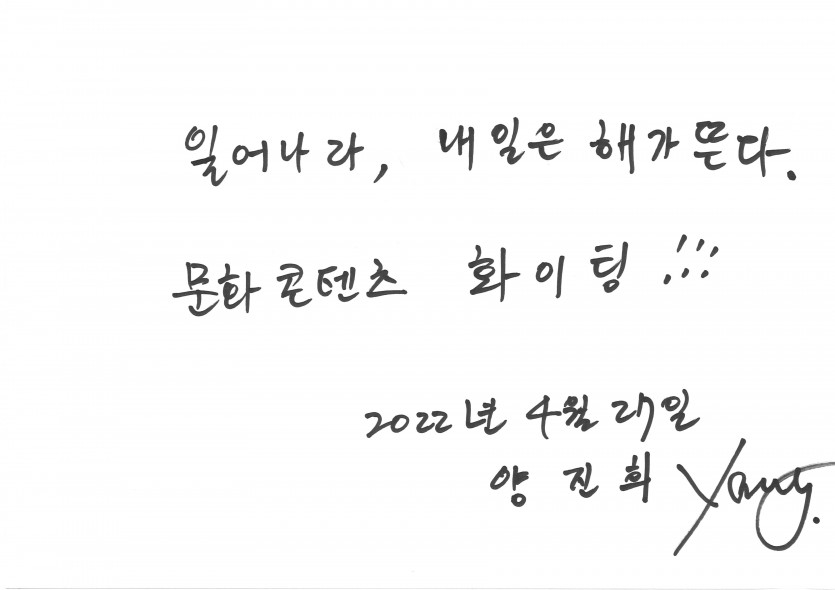 일어나라, 내일은 해가 뜬다.
문화콘텐츠 화이팅!!!
2022년 4월 27일
양진희 Yang.